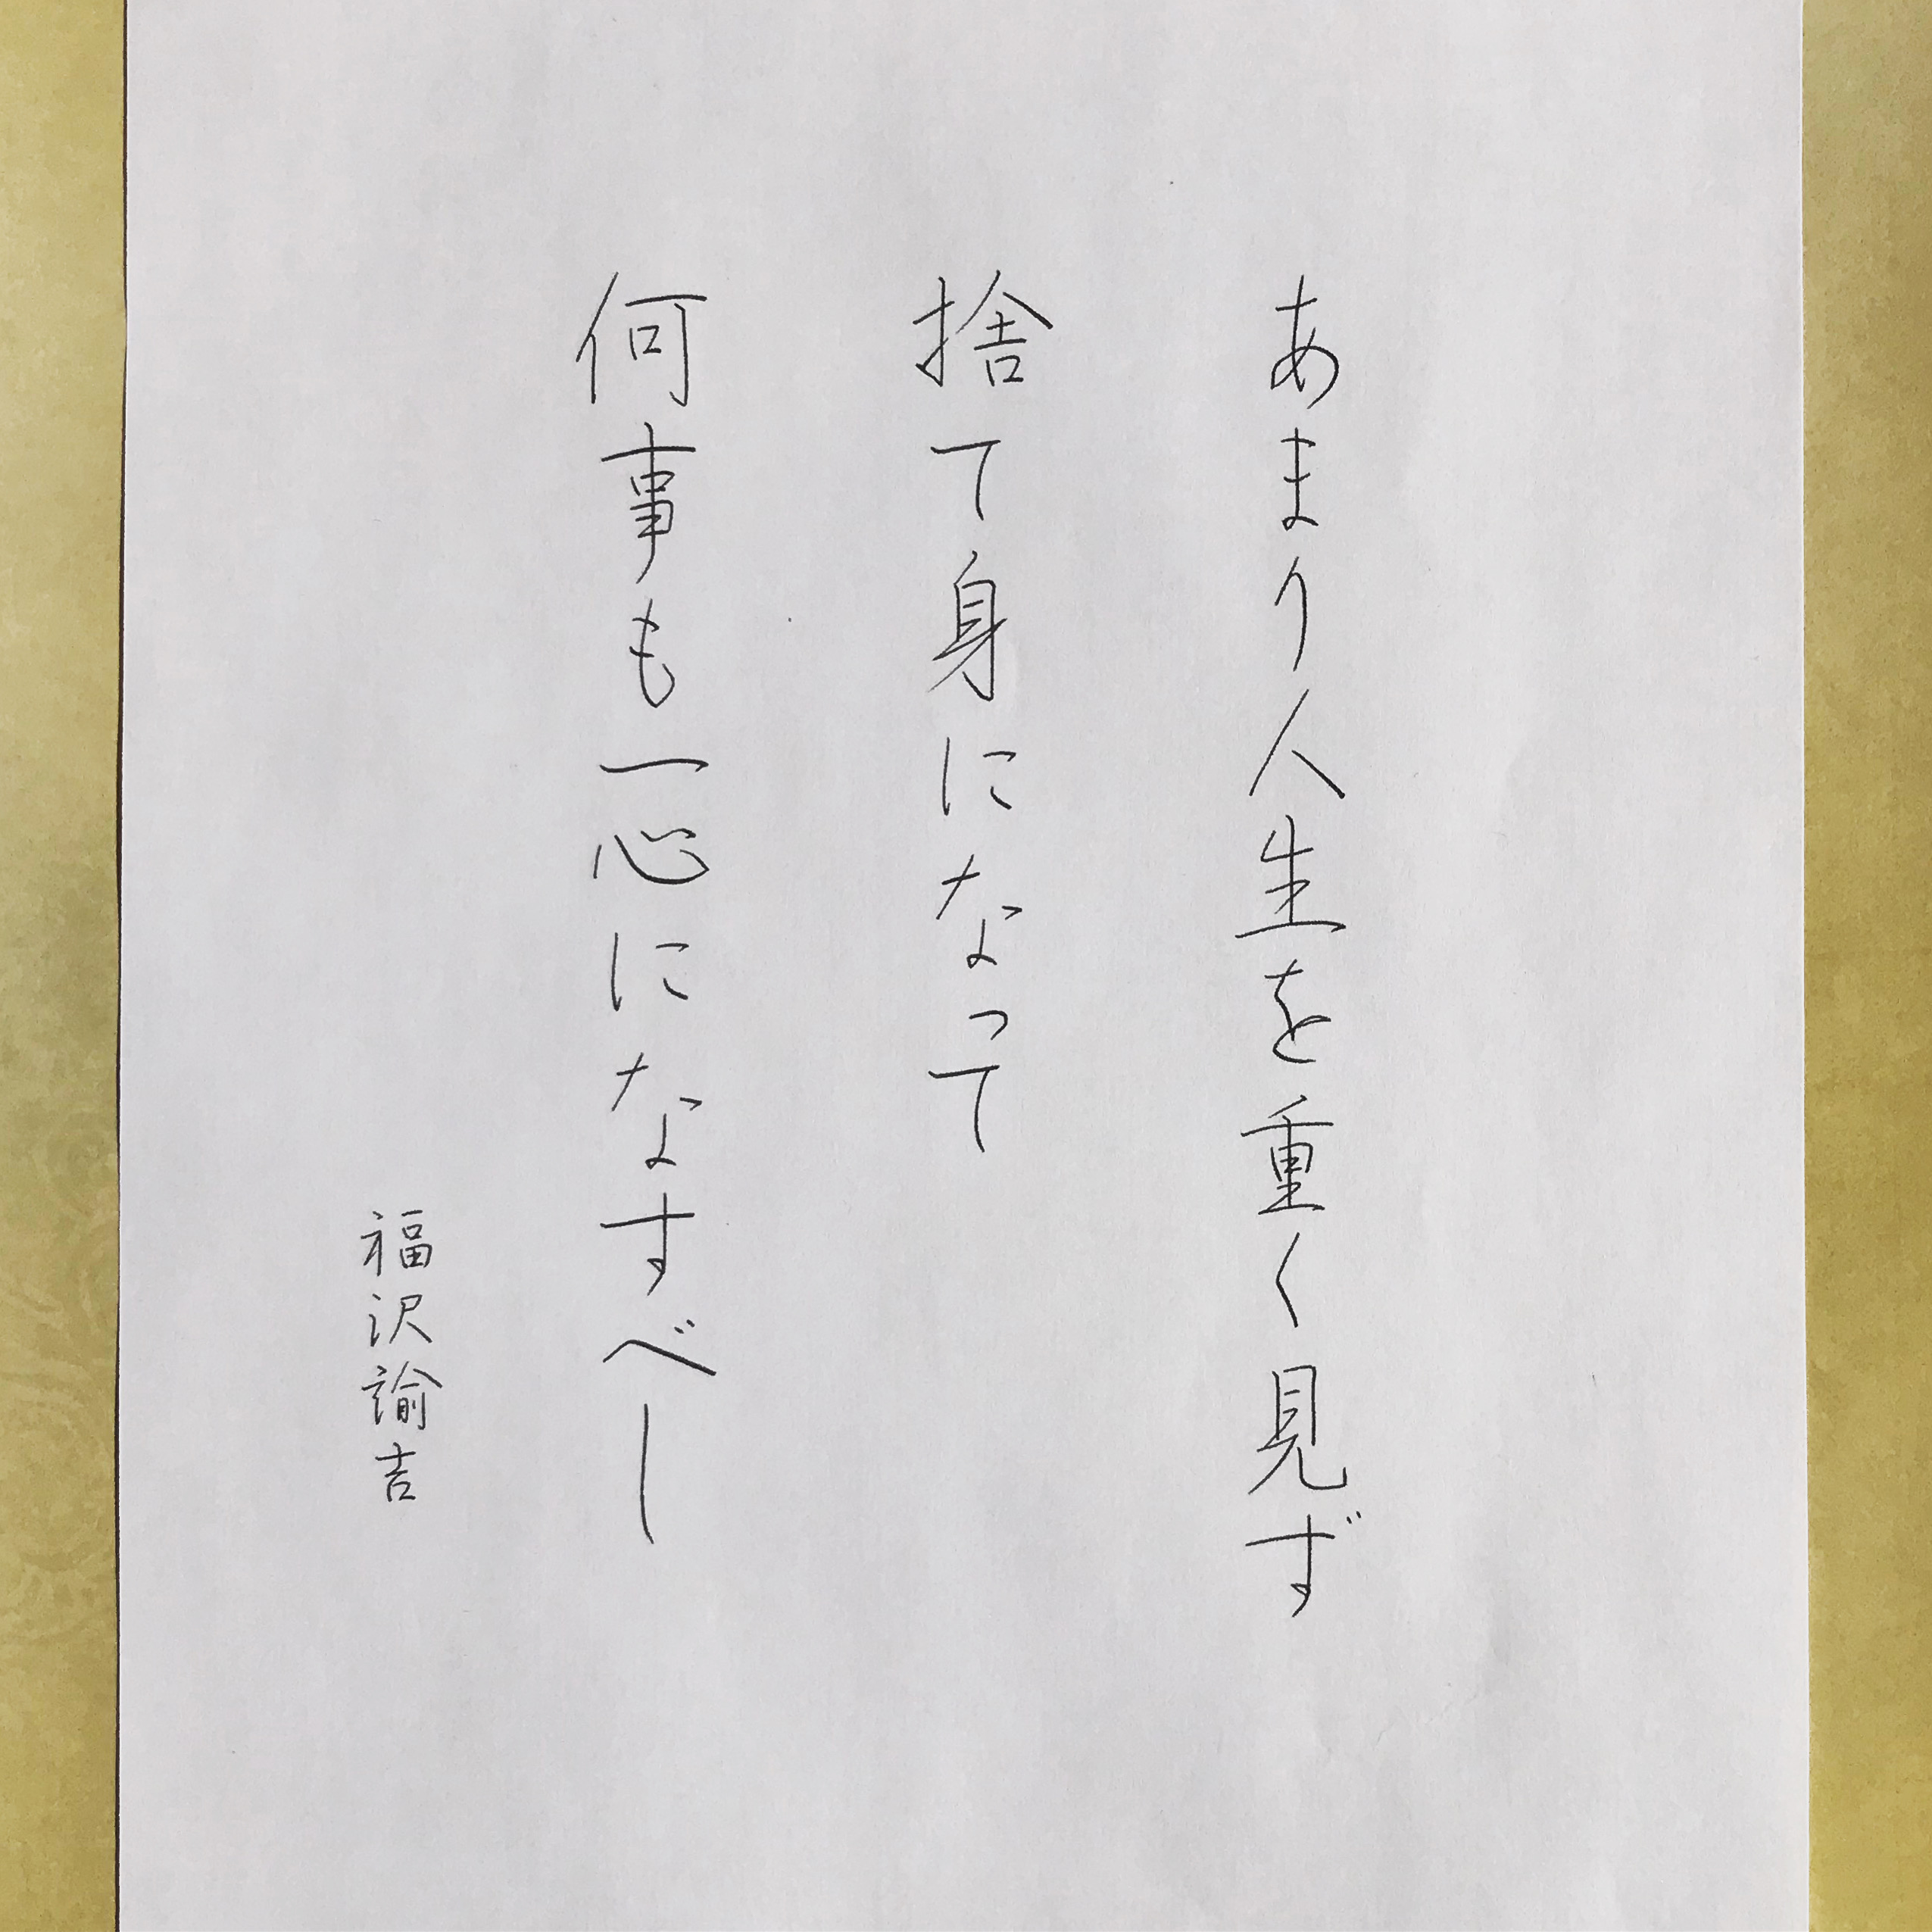 あまり人生を重く見ず
捨て身になって
何事も一心になすべし
福沢諭吉